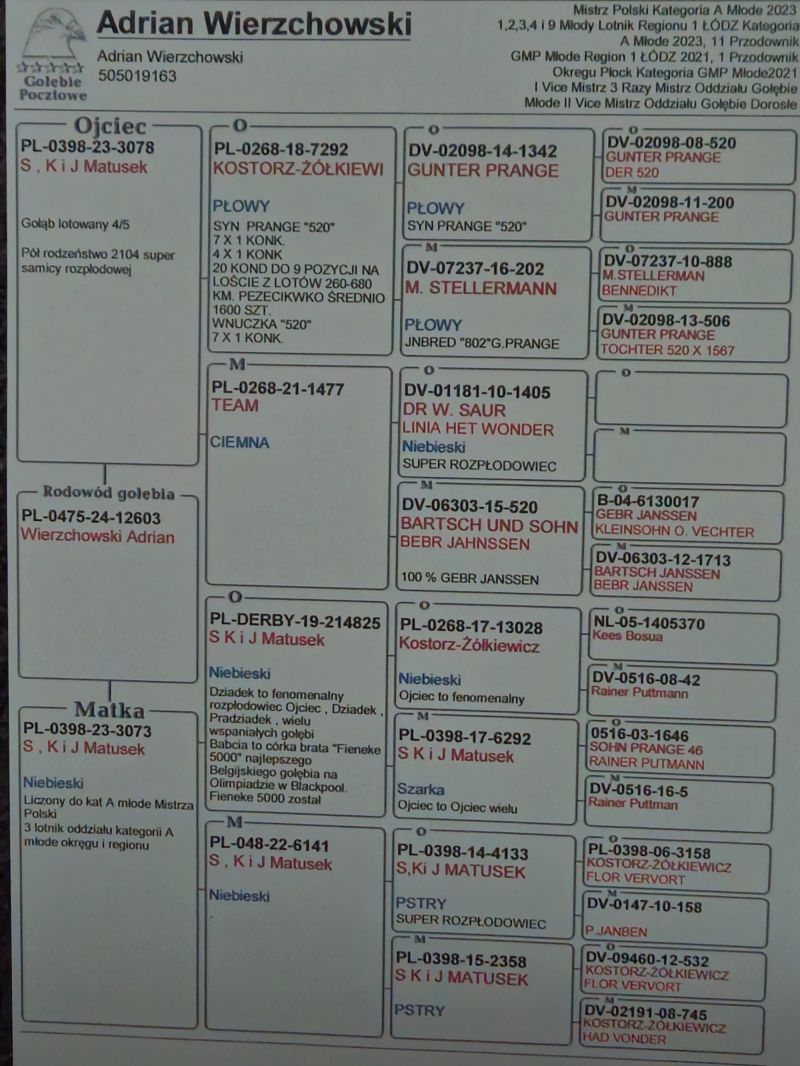 Adrian Wierzchowski
Adrian Wierzchowski
505019163
Gołębie
Pocztowe
Mistrz Polski Kategoria A Młode 2023
1,2,3,4 i 9 Młody Lotnik Regionu 1 ŁÓDZ Kategoria
A Młode 2023, 11 Przodownik
GMP Młode Region 1 ŁÓDZ 2021, 1 Przodownik
Okregu Płock Kategoria GMP Młode2021
I Vice Mistrz 3 Razy Mistrz Oddziału Gołębie
Młode II Vice Mistrz Oddziału Gołębie Dorosłe
Ojciec
PL-0398-23-3078
S , K i J Matusek
Gołąb lotowany 4/5
Pół rodzeństwo 2104 super
samicy rozpłodowej
Rodowód gołębia
PL-0475-24-12603
Wierzchowski Adrian
Matka
PL-0398-23-3073
S , K i J Matusek
Niebieski
Liczony do kat A młode Mistrza
Polski
3 lotnik oddziału kategorii A
młode okręgu i regionu
O
PL-0268-18-7292
KOSTORZ-ŻÓŁKIEWI
PŁOWY
SYN PRANGE "520"
7 X 1 KONK.
4 X 1 KONK
20 KOND DO 9 POZYCJI NA
LOŚCIE Z LOTÓW 260-680
KM. PEZECIKWKO ŚREDNIO
1600 SZT.
WNUCZKA "520"
7 X 1 KONK.
M
PL-0268-21-1477
TEAM
CIEMNA
O
PL-DERBY-19-214825
S K i J Matusek
Niebieski
Dziadek to fenomenalny
rozpłodowiec Ojciec , Dziadek ,
Pradziadek , wielu
wspaniałych gołębi
Babcia to córka brata "Fieneke
5000" najlepszego
Belgijskiego gołębia na
Olimpiadzie w Blackpool.
Fieneke 5000 został
M
PL-048-22-6141
S , K i J Matusek
Niebieski
O
DV-02098-14-1342
GUNTER PRANGE
PŁOWY
SYN PRANGE "520"
M
DV-07237-16-202
M. STELLERMANN
PŁOWY
JNBRED "802"G.PRANGE
O
DV-01181-10-1405
DR W. SAUR
LINIA HET WONDER
Niebieski
SUPER ROZPŁODOWIEC
M
DV-06303-15-520
BARTSCH UND SOHN
BEBR JAHNSSEN
100 % GEBR JANSSEN
O
PL-0268-17-13028
Kostorz-Żółkiewicz
Niebieski
Ojciec to fenomenalny
M
PL-0398-17-6292
S K i J Matusek
Szarka
Ojciec to Ojciec wielu
O
PL-0398-14-4133
S,Ki J MATUSEK
PSTRY
SUPER ROZPŁODOWIEC
M
PL-0398-15-2358
S K i J MATUSEK
PSTRY
O
DV-02098-08-520
GUNTER PRANGE
DER 520
M
DV-02098-11-200
GUNTER PRANGE
O
DV-07237-10-888
M.STELLERMAN
BENNEDIKT
M
DV-02098-13-506
GUNTER PRANGE
TOCHTER 520 X 1567
O
M
O
B-04-6130017
GEBR JANSSEN
KLEINSOHN O. VECHTER
M
DV-06303-12-1713
BARTSCH JANSSEN
BEBR JANSSEN
O
NL-05-1405370
Kees Bosua
M
DV-0516-08-42
Rainer Puttmann
O
0516-03-1646
SOHN PRANGE 46
RAINER PUTMANN
M
DV-0516-16-5
Rainer Puttman
O
PL-0398-06-3158
KOSTORZ-ŻÓŁKIEWICZ
FLOR VERVORT
M
DV-0147-10-158
P.JANBEN
O
DV-09460-12-532
KOSTORZ-ŻÓŁKIEWICZ
FLOR VERVORT
M
DV-02191-08-745
KOSTORZ-ŻÓŁKIEWICZ
HAD VONDER